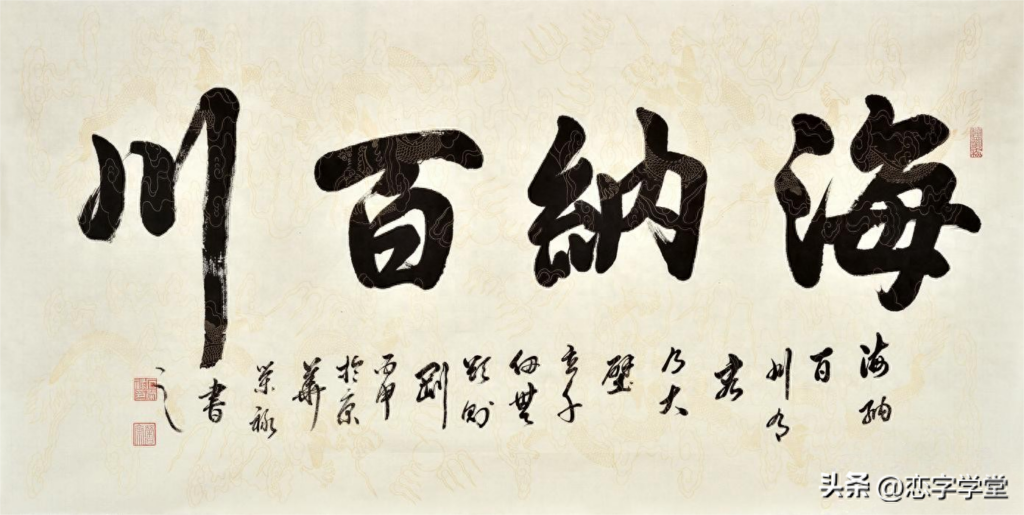 海納百川
海納
百
川有
容
乃大
壁
立千
仞無
欲則
剛
丙申
於京
華
榮祿
書
头条 @恋字学堂